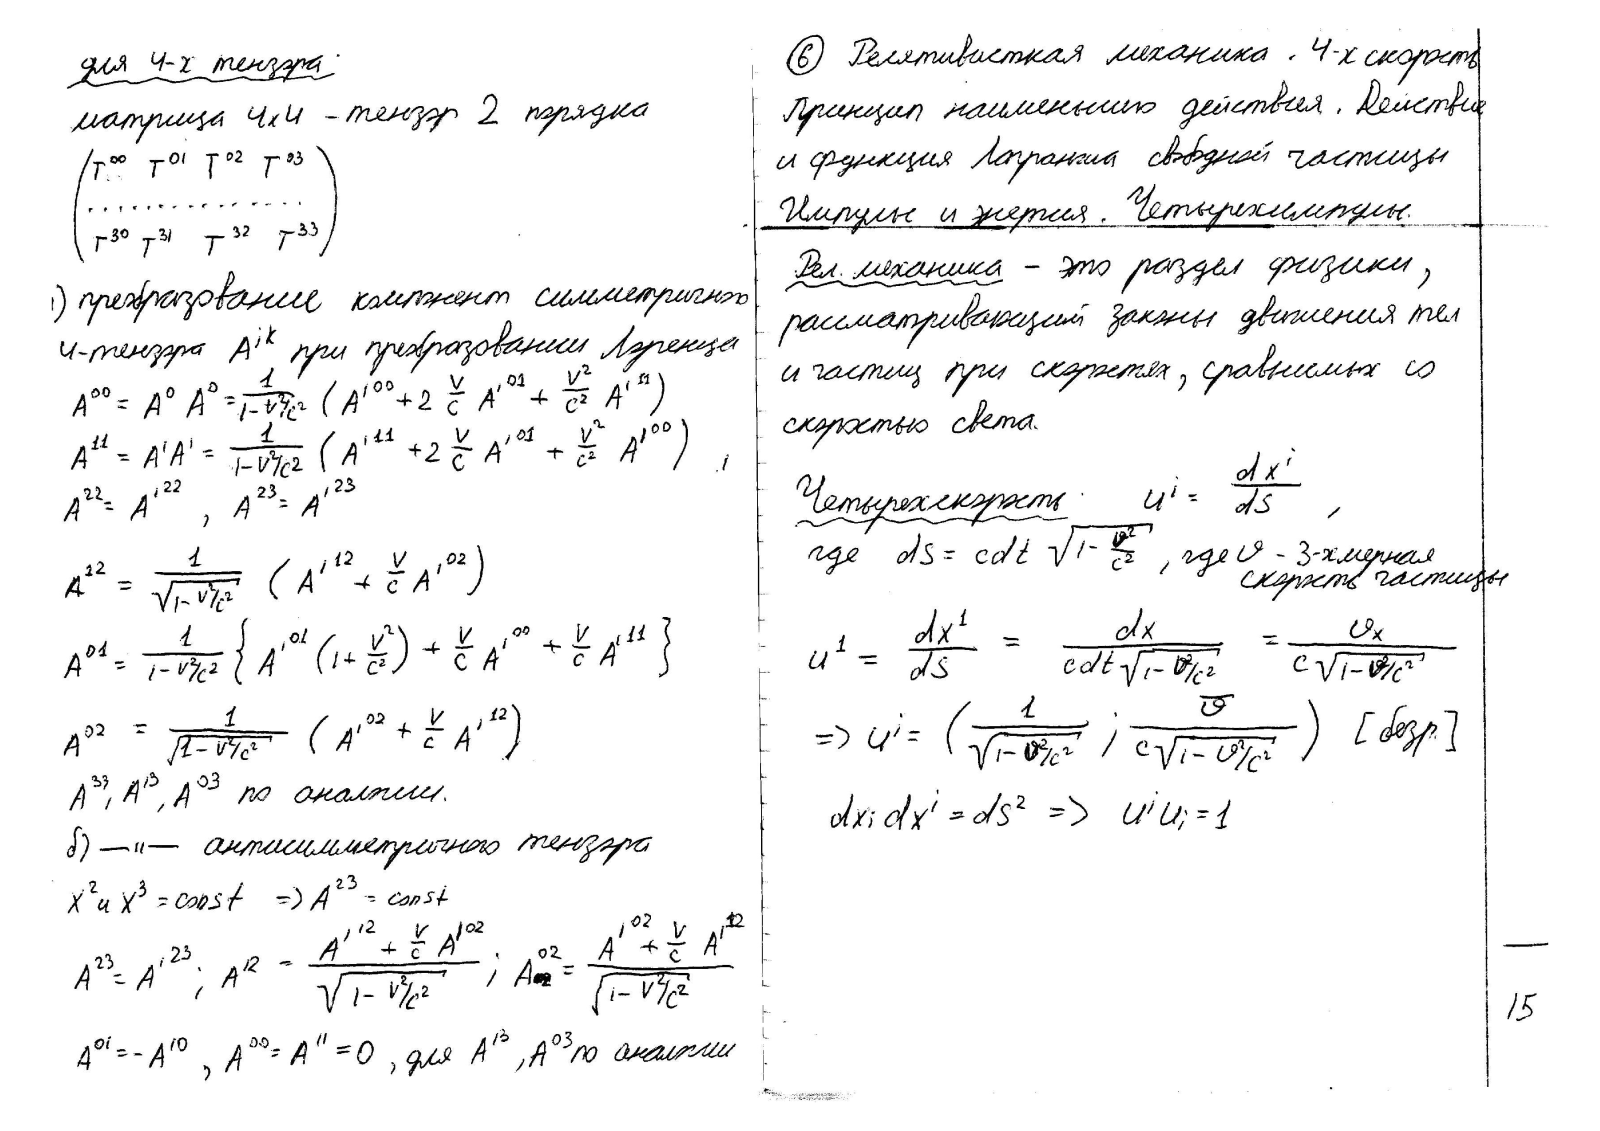 для 4-х тензора
матрица 4x4 - тензор 2 порядка
T⁰⁰ T⁰¹ T⁰² T⁰³
. . . . . . . . . . . . . . .
T³⁰ T³¹ T³² T³³
1) преобразование компонент симметричного
4-тензора Aⁱᵏ при преобразовании Лоренца
A⁰⁰ = A⁰ A⁰ = 1/(1-V²/c²) (A'⁰⁰ + 2 V/c A'⁰¹ + V²/c² A'¹¹)
A¹¹ = A¹A¹ = 1/(1-V²/c²) (A'¹¹ + 2 V/c A'⁰¹ + V²/c² A'⁰⁰) ,
A²² = A'²² , A²³ = A'²³
A¹² = 1/√(1-V²/c²) (A'¹² + V/c A'⁰²)
A⁰¹ = 1/(1-V²/c²) {A'⁰¹ (1+V²/c²) + V/c A'⁰⁰ + V/c A'¹¹}
A⁰² = 1/√(1-V²/c²) (A'⁰² + V/c A'¹²)
A³³, A¹³, A⁰³ по аналогии.
б) —"— антисимметричного тензора
x² и x³ = const => A²³ = const
A²³ = A'²³ ; A¹² = (A'¹² + V/c A'⁰²)/√(1-V²/c²) ; A⁰² = (A'⁰² + V/c A'¹²)/√(1-V²/c²)
A⁰¹ = -A¹⁰ , A⁰⁰ = A¹¹ = 0 , для A¹³, A⁰³ по аналогии
⑥ Релятивисткая механика. 4-х скорость
Принцип наименьшего действия. Действие
и функция Лагранжа свободной частицы
Импульс и энергия. Четырехимпульс.
Рел. механика - это раздел физики,
рассматривающий законы движения тел
и частиц при скоростях, сравнимых со
скоростью света.
Четырехскорость uⁱ = dxⁱ/ds ,
где ds = cdt √(1-v²/c²) , где v - 3-хмерная
скорость частицы
u¹ = dx¹/ds = dx/(cdt√(1-v²/c²)) = vₓ/(c√(1-v²/c²))
=> uⁱ = (1/√(1-v²/c²) ; v̄/(c√(1-v²/c²))) [безр.]
dxᵢ dxⁱ = ds² => uⁱ uᵢ = 1
15